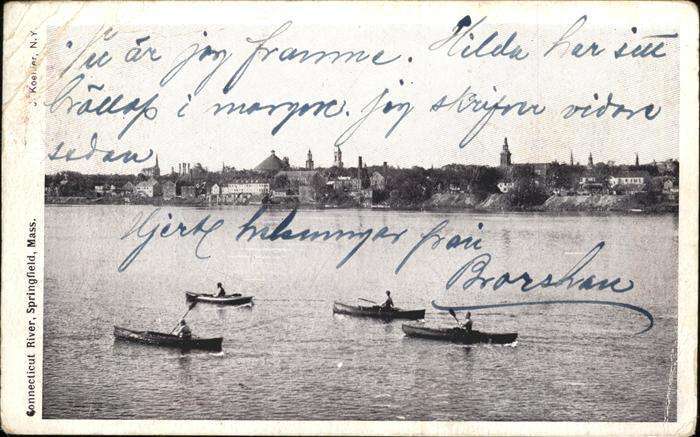 Nu är jag framme. Hilda har sitt
bröllop i morgon. jag skrifver vidare
sedan
Hjertl helsningar från
Brorshan
Connecticut River, Springfield, Mass.
Koehler, N.Y.